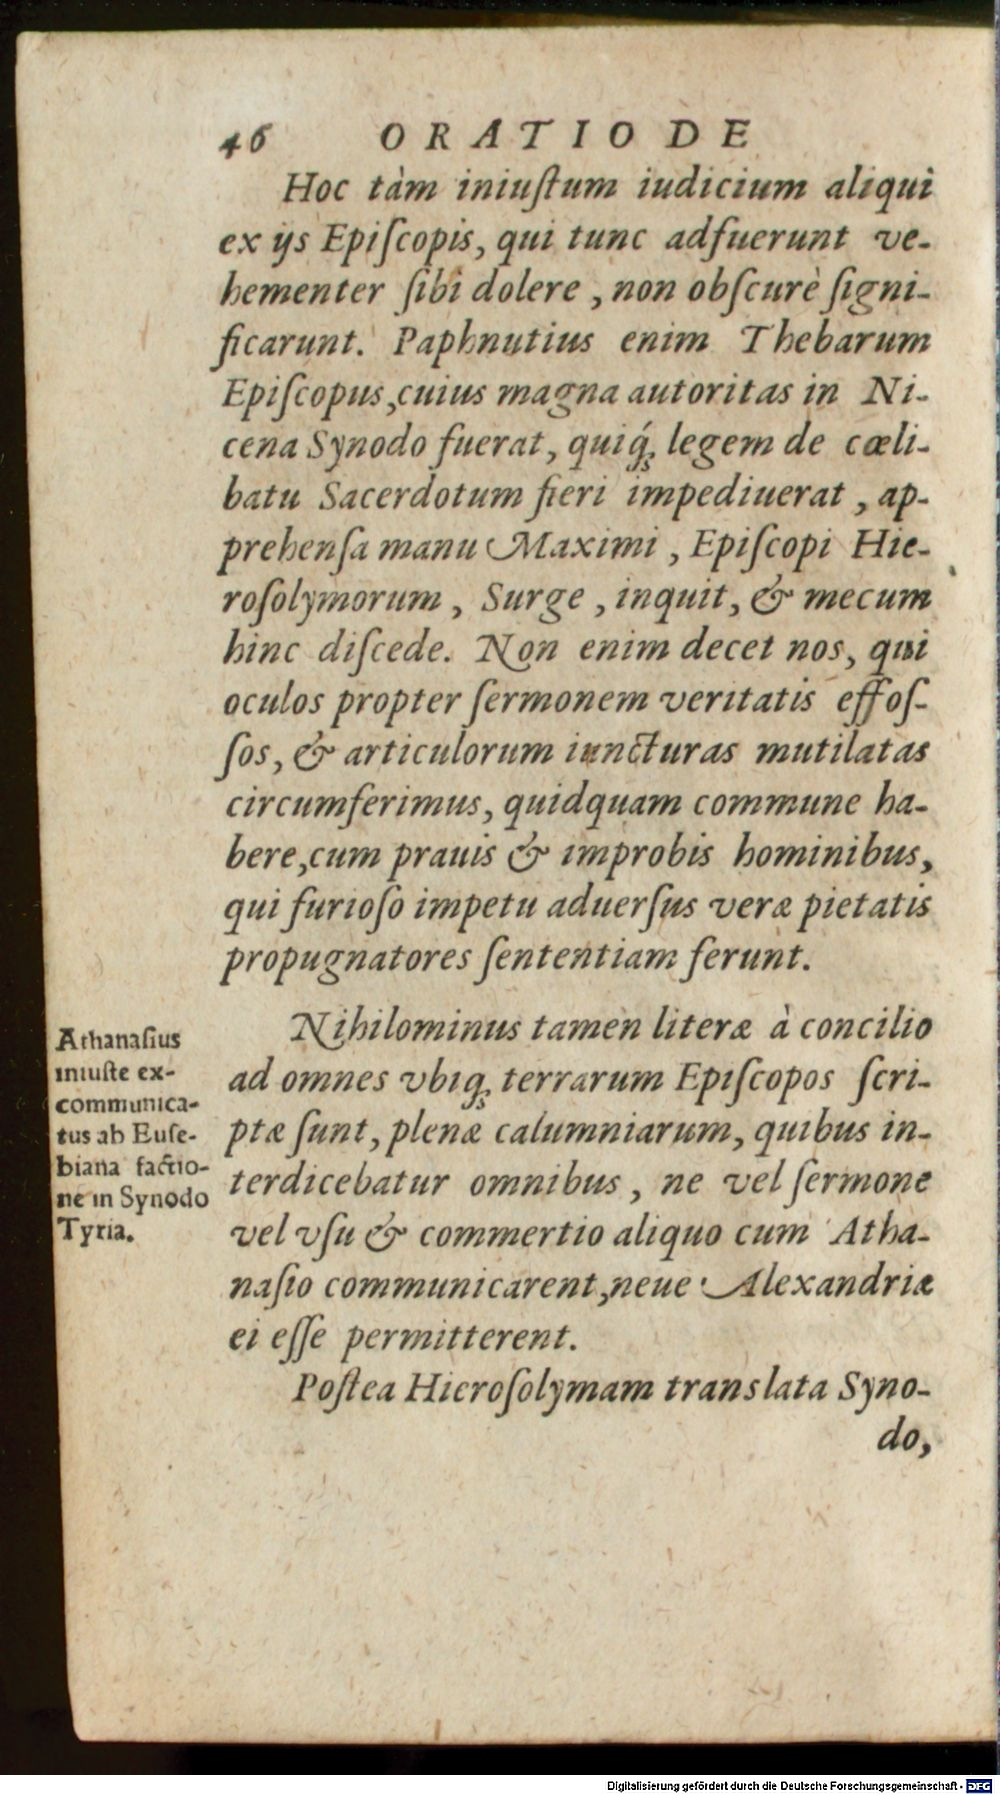 46 ORATIO DE
Hoc tàm iniuſtum iudicium aliqui
ex ijs Epiſcopis, qui tunc adfuerunt ve-
hementer ſibi dolere, non obſcurè ſigni-
ficarunt. Paphnutius enim Thebarum
Epiſcopus, cuius magna autoritas in Ni-
cena Synodo fuerat, quiq́; legem de cœli-
batu Sacerdotum fieri impediuerat, ap-
prehenſa manu Maximi, Epiſcopi Hie-
roſolymorum, Surge, inquit, & mecum
hinc diſcede. Non enim decet nos, qui
oculos propter ſermonem veritatis effoſ-
ſos, & articulorum iuncturas mutilatas
circumferimus, quidquam commune ha-
bere, cum prauis & improbis hominibus,
qui furioſo impetu aduerſus veræ pietatis
propugnatores ſententiam ferunt.
Athanaſius
iniuſte ex-
communica-
tus ab Euſe-
biana factio-
ne in Synodo
Tyria.
Nihilominus tamen literæ à concilio
ad omnes vbiq; terrarum Epiſcopos ſcri-
ptæ ſunt, plenæ calumniarum, quibus in-
terdicebatur omnibus, ne vel ſermone
vel vſu & commertio aliquo cum Atha-
naſio communicarent, neue Alexandriæ
ei eſſe permitterent.
Poſtea Hieroſolymam translata Syno-
do,
Digitalisierung gefördert durch die Deutsche Forschungsgemeinschaft - DFG